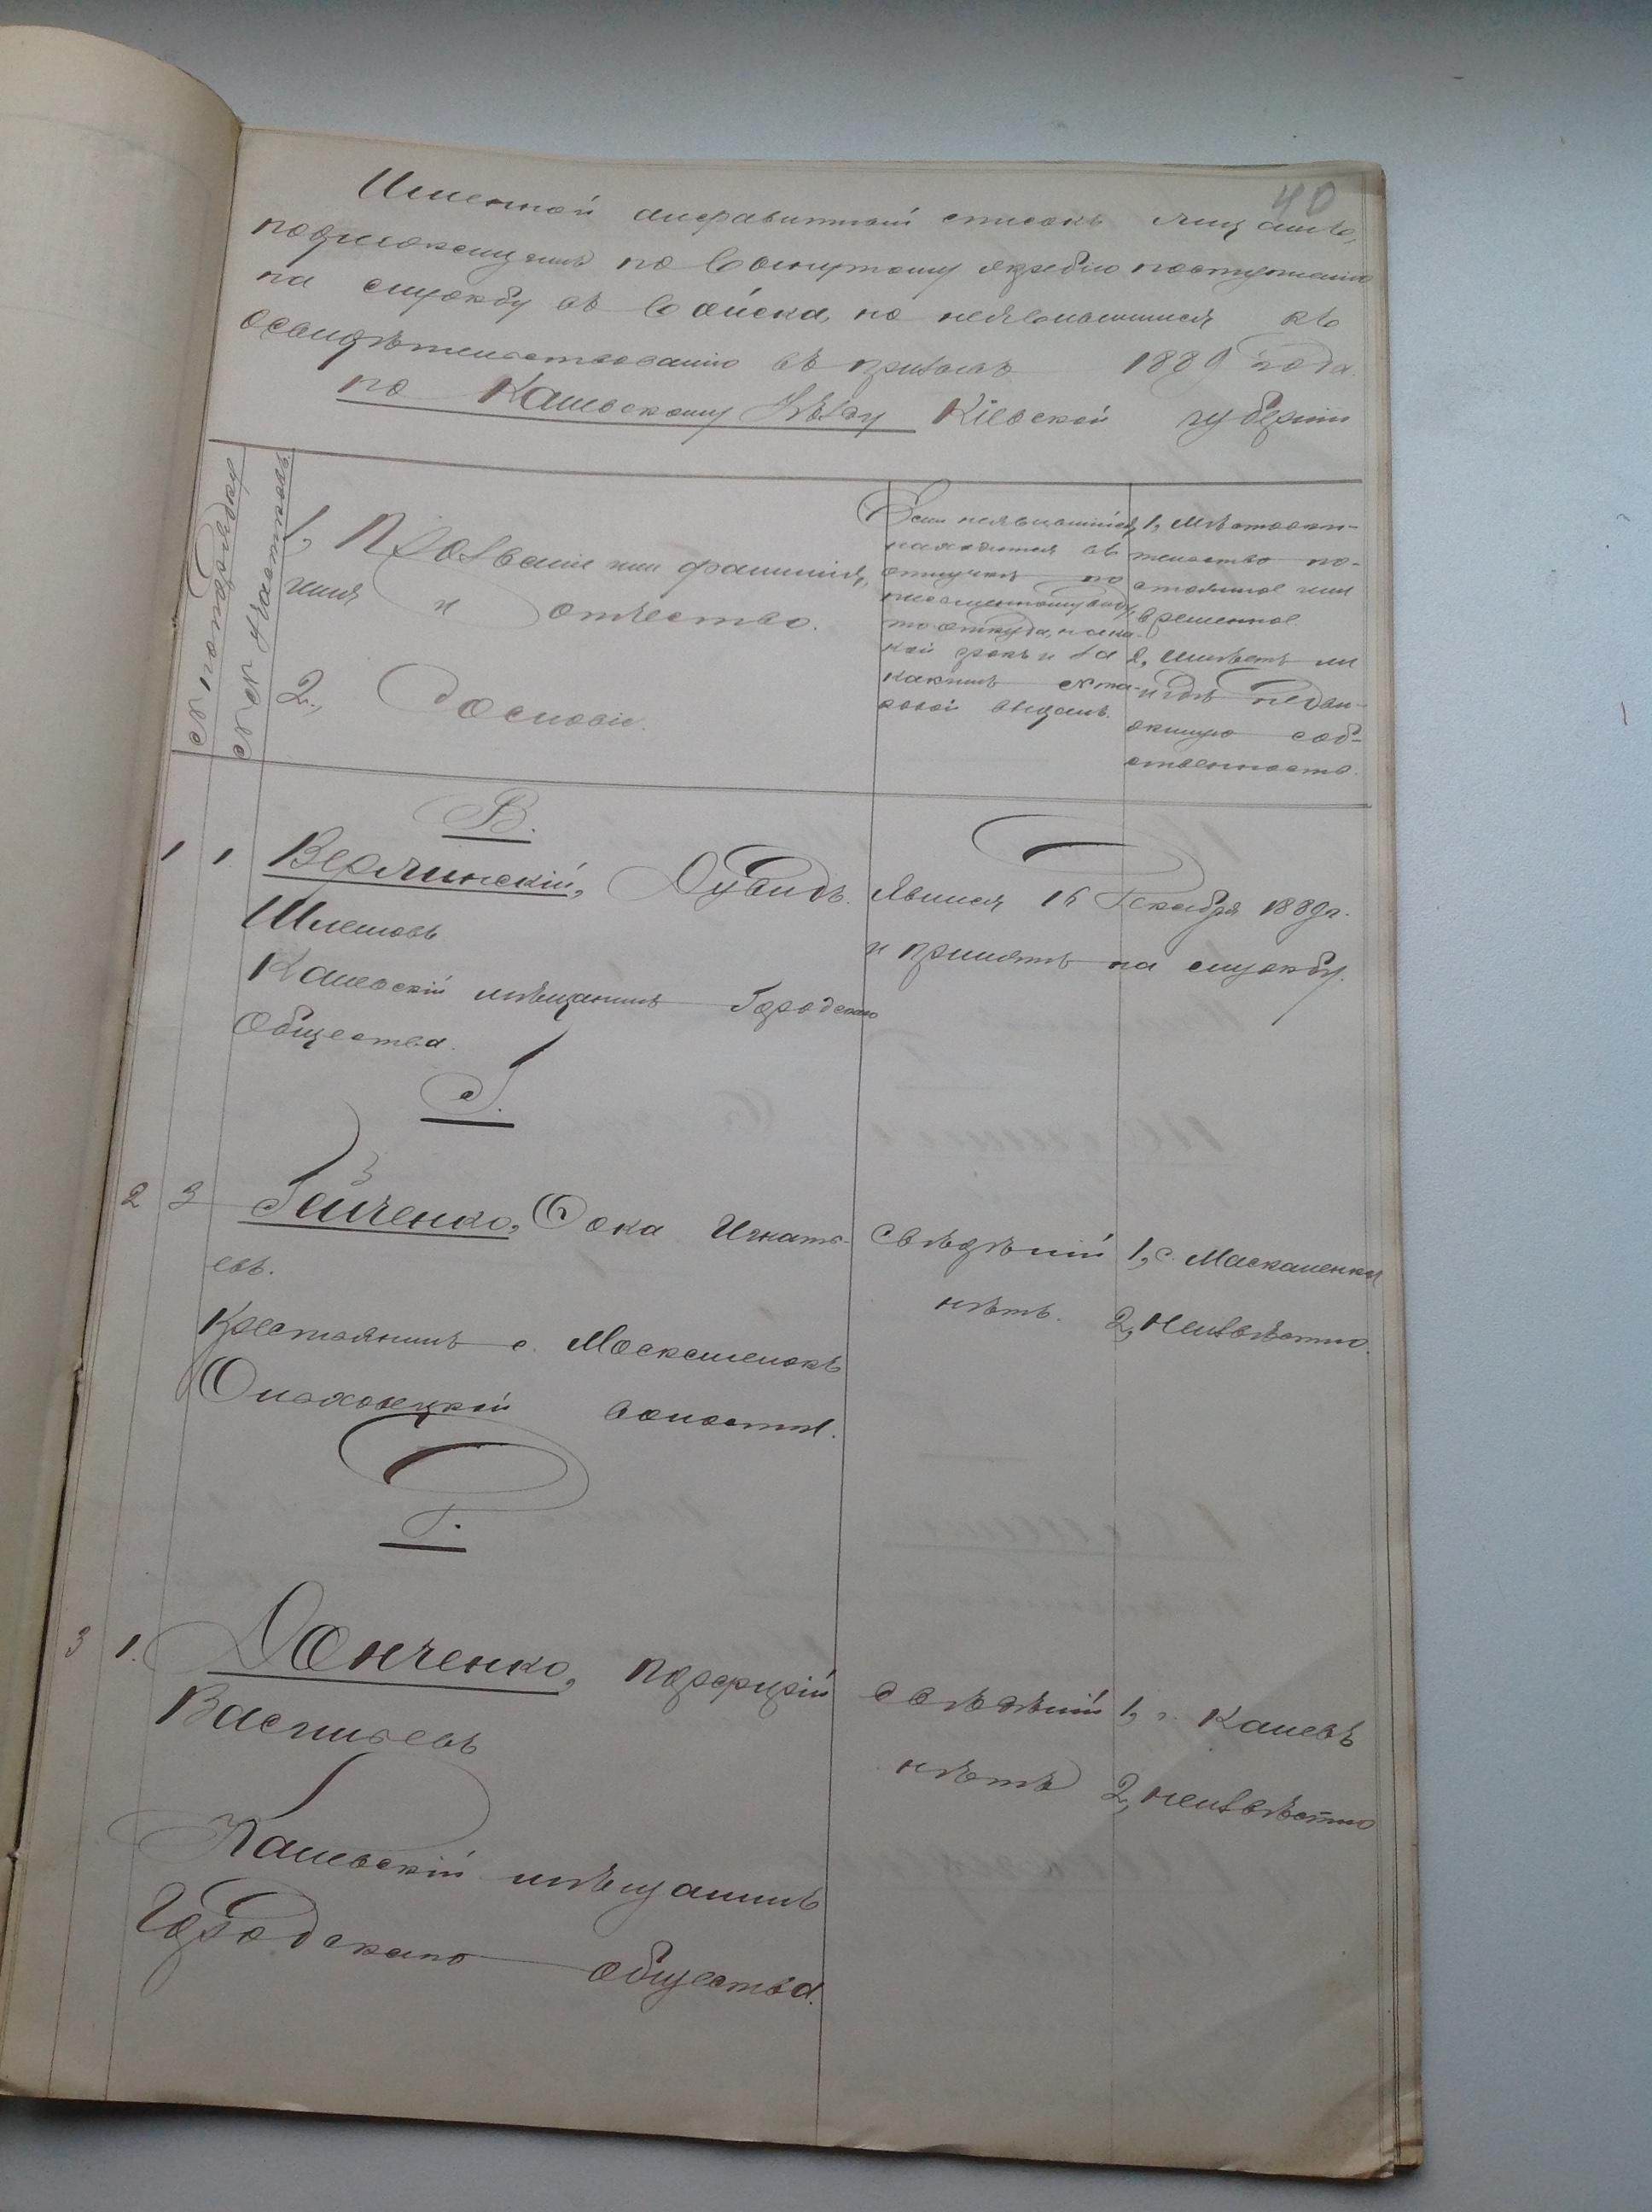 40
Именной алфавитный списокъ лицамъ,
подлежащимъ по вынутому жребію поступленію
на службу въ войска, но неявившимся къ
освидѣтельствованію въ призывъ 1889 года
по Каневскому Уѣзду Кіевской губерніи
№ по порядку
№№ участковъ
1, Прозваніе или фамилія,
имя и отчество.
2, Сословіе.
Если неявившійся
находится въ
отлучкѣ по
письменному виду,
то откуда, на ка-
кой срокъ и за
какимъ № та-
ковой выданъ.
1, Мѣстожи-
тельство по-
стоянное или
временное.
2, Имѣетъ ли
и гдѣ недви-
жимую соб-
ственность.
В.
1 1 Верлинскій, Дувидъ
Шлемовъ
Каневскій мѣщанинъ Городскаго
Общества.
Явился 15 Декабря 1889 г.
и принятъ на службу.
Г.
2 3 Гайченко, Фока Игнать-
евъ.
Крестьянинъ с. Москаленокъ
волости.
Свѣдѣній
нѣтъ.
1, с. Маскаленки
2, Неизвѣстно.
Д.
3 1. Донченко, Порфирій
Васильевъ
Каневскій мѣщанинъ
Городскаго общества.
свѣдѣній
нѣтъ
1, г. Каневъ
2, неизвѣстно